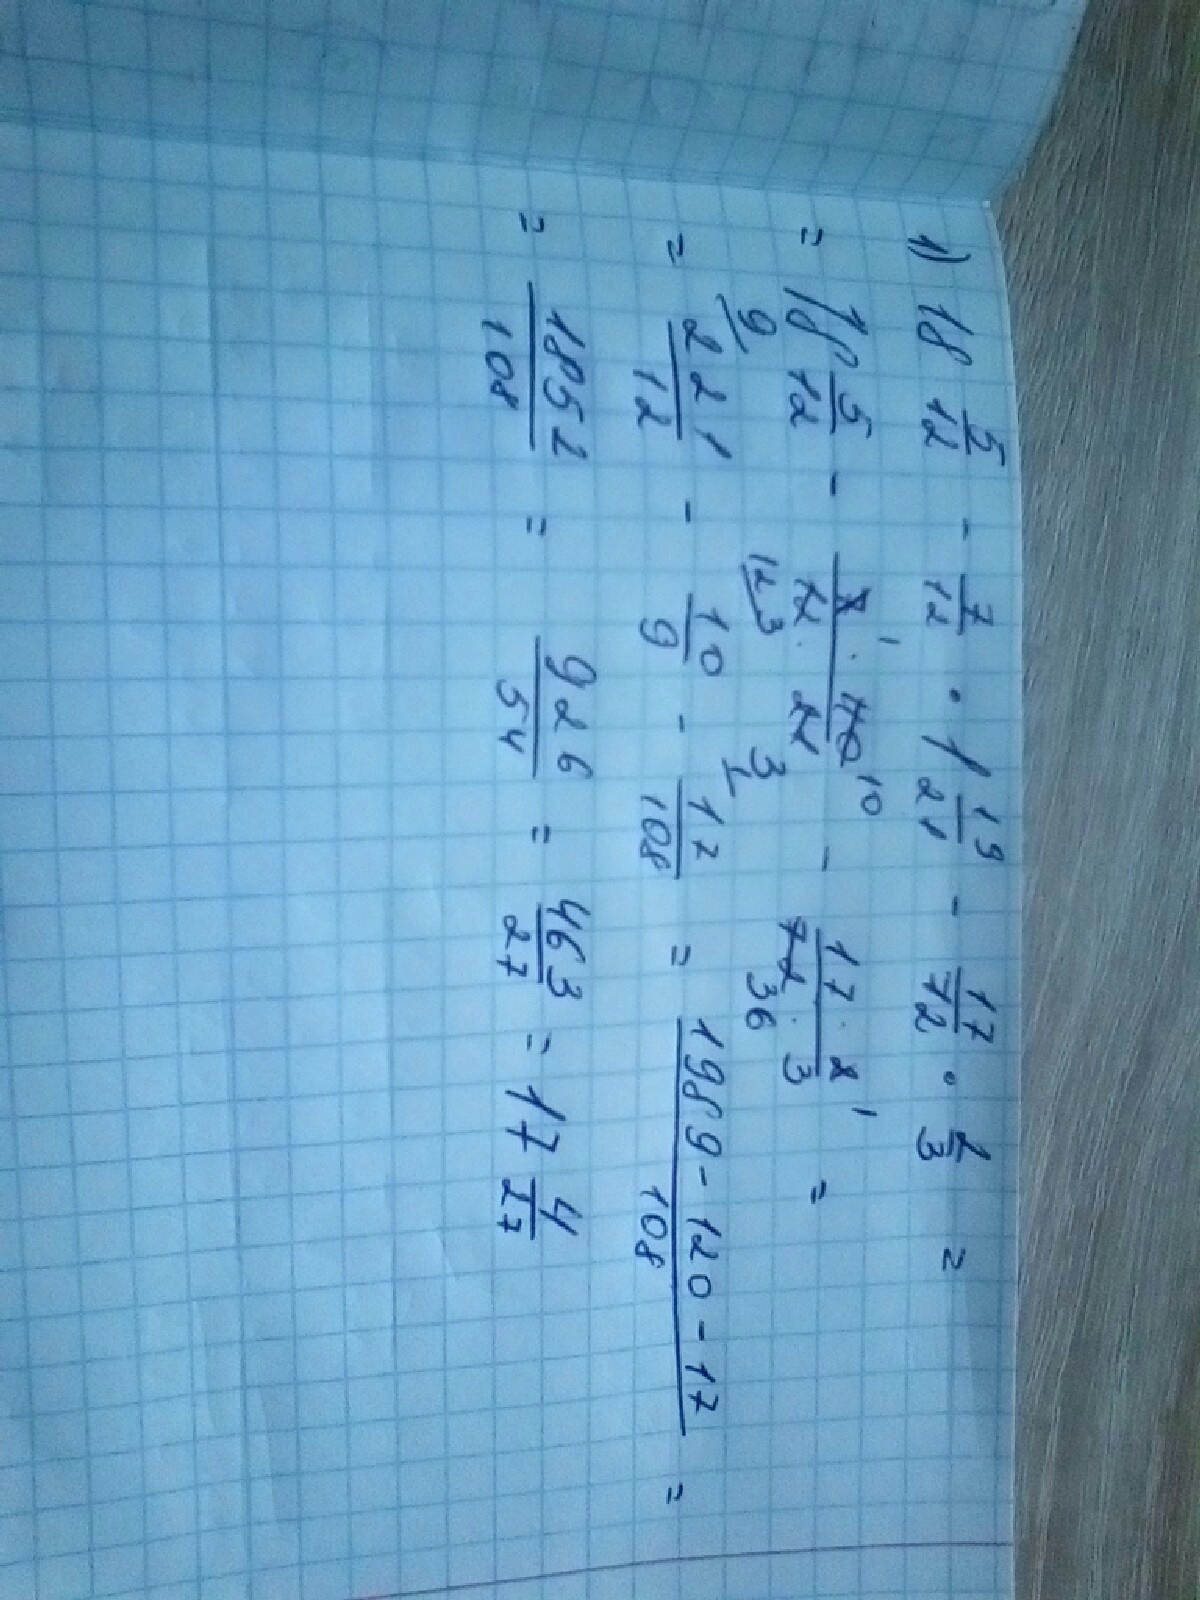 1) 18 5/12 - 7/12 · 1 19/21 - 17/72 · 2/3 =
= 18 5/12 - 7 · 40 / 12 · 21 - 17 · 2 / 72 · 3 =
= 221/12 - 10/9 - 17/108 = 1989 - 120 - 17 / 108 =
= 1852/108 = 926/54 = 463/27 = 17 4/27